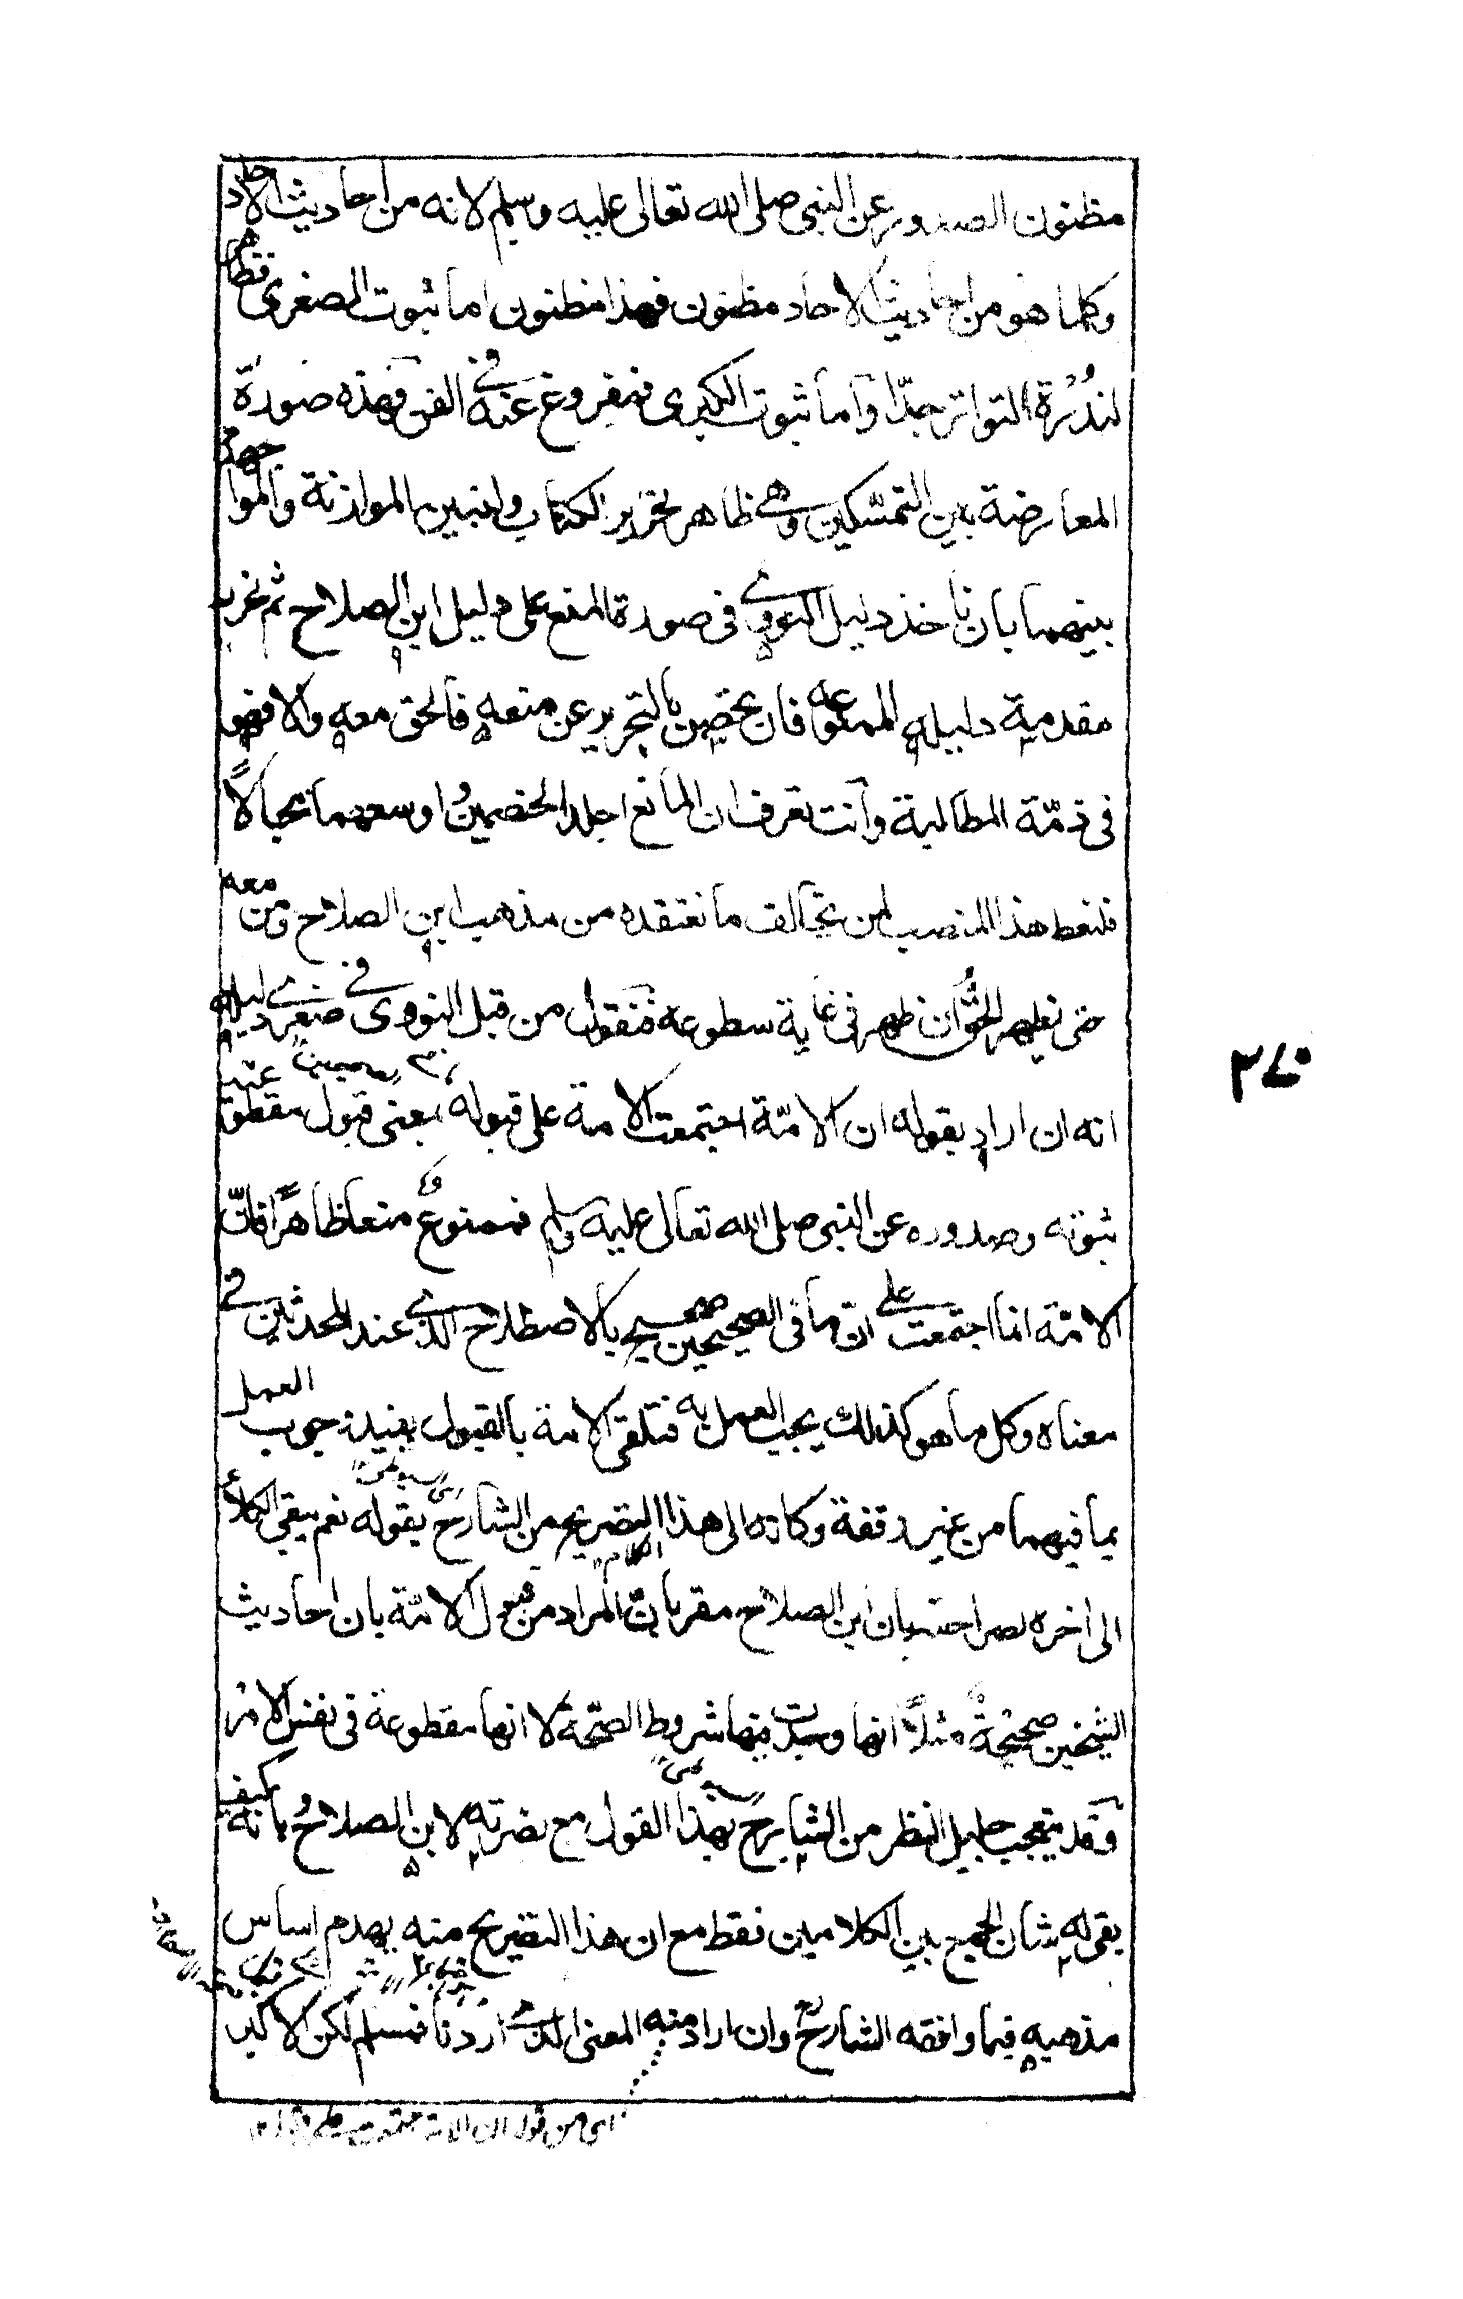 مظنون الصدور عن النبى صلى الله تعالى عليه وسلم لانه من احاديث الاحاد
وكلما هو من احاديث الاحاد مظنون فهذا مظنون اما ثبوت الصغرى فظاهر
لندرة التواتر جدّا واما ثبوت الكبرى فمفروغ عنه فى الفن فهذه صورة
المعارضة بين التمسّكين وهى ظاهر تحرير الكتاب ولنبين الموازنة والمواجهة
بينهما بان ناخذ دليل النووى فى صورة المنع على دليل ابن الصلاح ثم نحرر
مقدمة دليله الممنوعة فان تحصن بالتحرير عن منعه فالحق معه والا فهو
فى ذمّة المطالبة وانت تعرف ان المانع اجلد الخصمين واوسعهما مجالاً
فلنعط هذا المنصب لمن يخالف ما نعتقده من مذهب ابن الصلاح ومن معه
حتى يظهر الحق ان ظهر فى غاية سطوعه فنقول من قبل النووى فى صغرى دليله
انه ان اراد بقوله ان الامّة اجتمعت الامة على قبوله بمعنى قبول مقطوعية
ثبوته وصدوره عن النبى صلى الله تعالى عليه وسلم فممنوع منعا ظاهرًا فانّ
الامّة انما اجتمعت على انّ ما فى الصحيحين صحيح بالاصطلاح الذى عند المحدثين فى
معناه وكل ما هو كذلك يجب العمل به فتلقى الامة بالقبول يفيد وجوب العمل
بما فيهما من غير وقفة وكانه الى هذا التصريح من الشارح بقوله نعم يبقى الكلام
الى اخره بصراحته بان ابن الصلاح مقر بانّ المراد من قبول الامّة بان احاديث
الشيخين صحيحة مثلاً انها وجدت فيها شروط الصحّة لا انها مقطوعة فى نفس الامر
وقد يتعجب جليل النظر من الشارح بهذا القول مع نصرته لابن الصلاح بانه كيف
بقى له شان الجمع بين الكلامين فقط مع ان هذا التقرير منه يهدم اساس
مذهبه فيما وافقه الشارح وان اراد منه المعنى الذى اردنا فمسلم لكن الاكبر
اى من قوله ان الامة اجتمعت على قبوله
٣٧٠